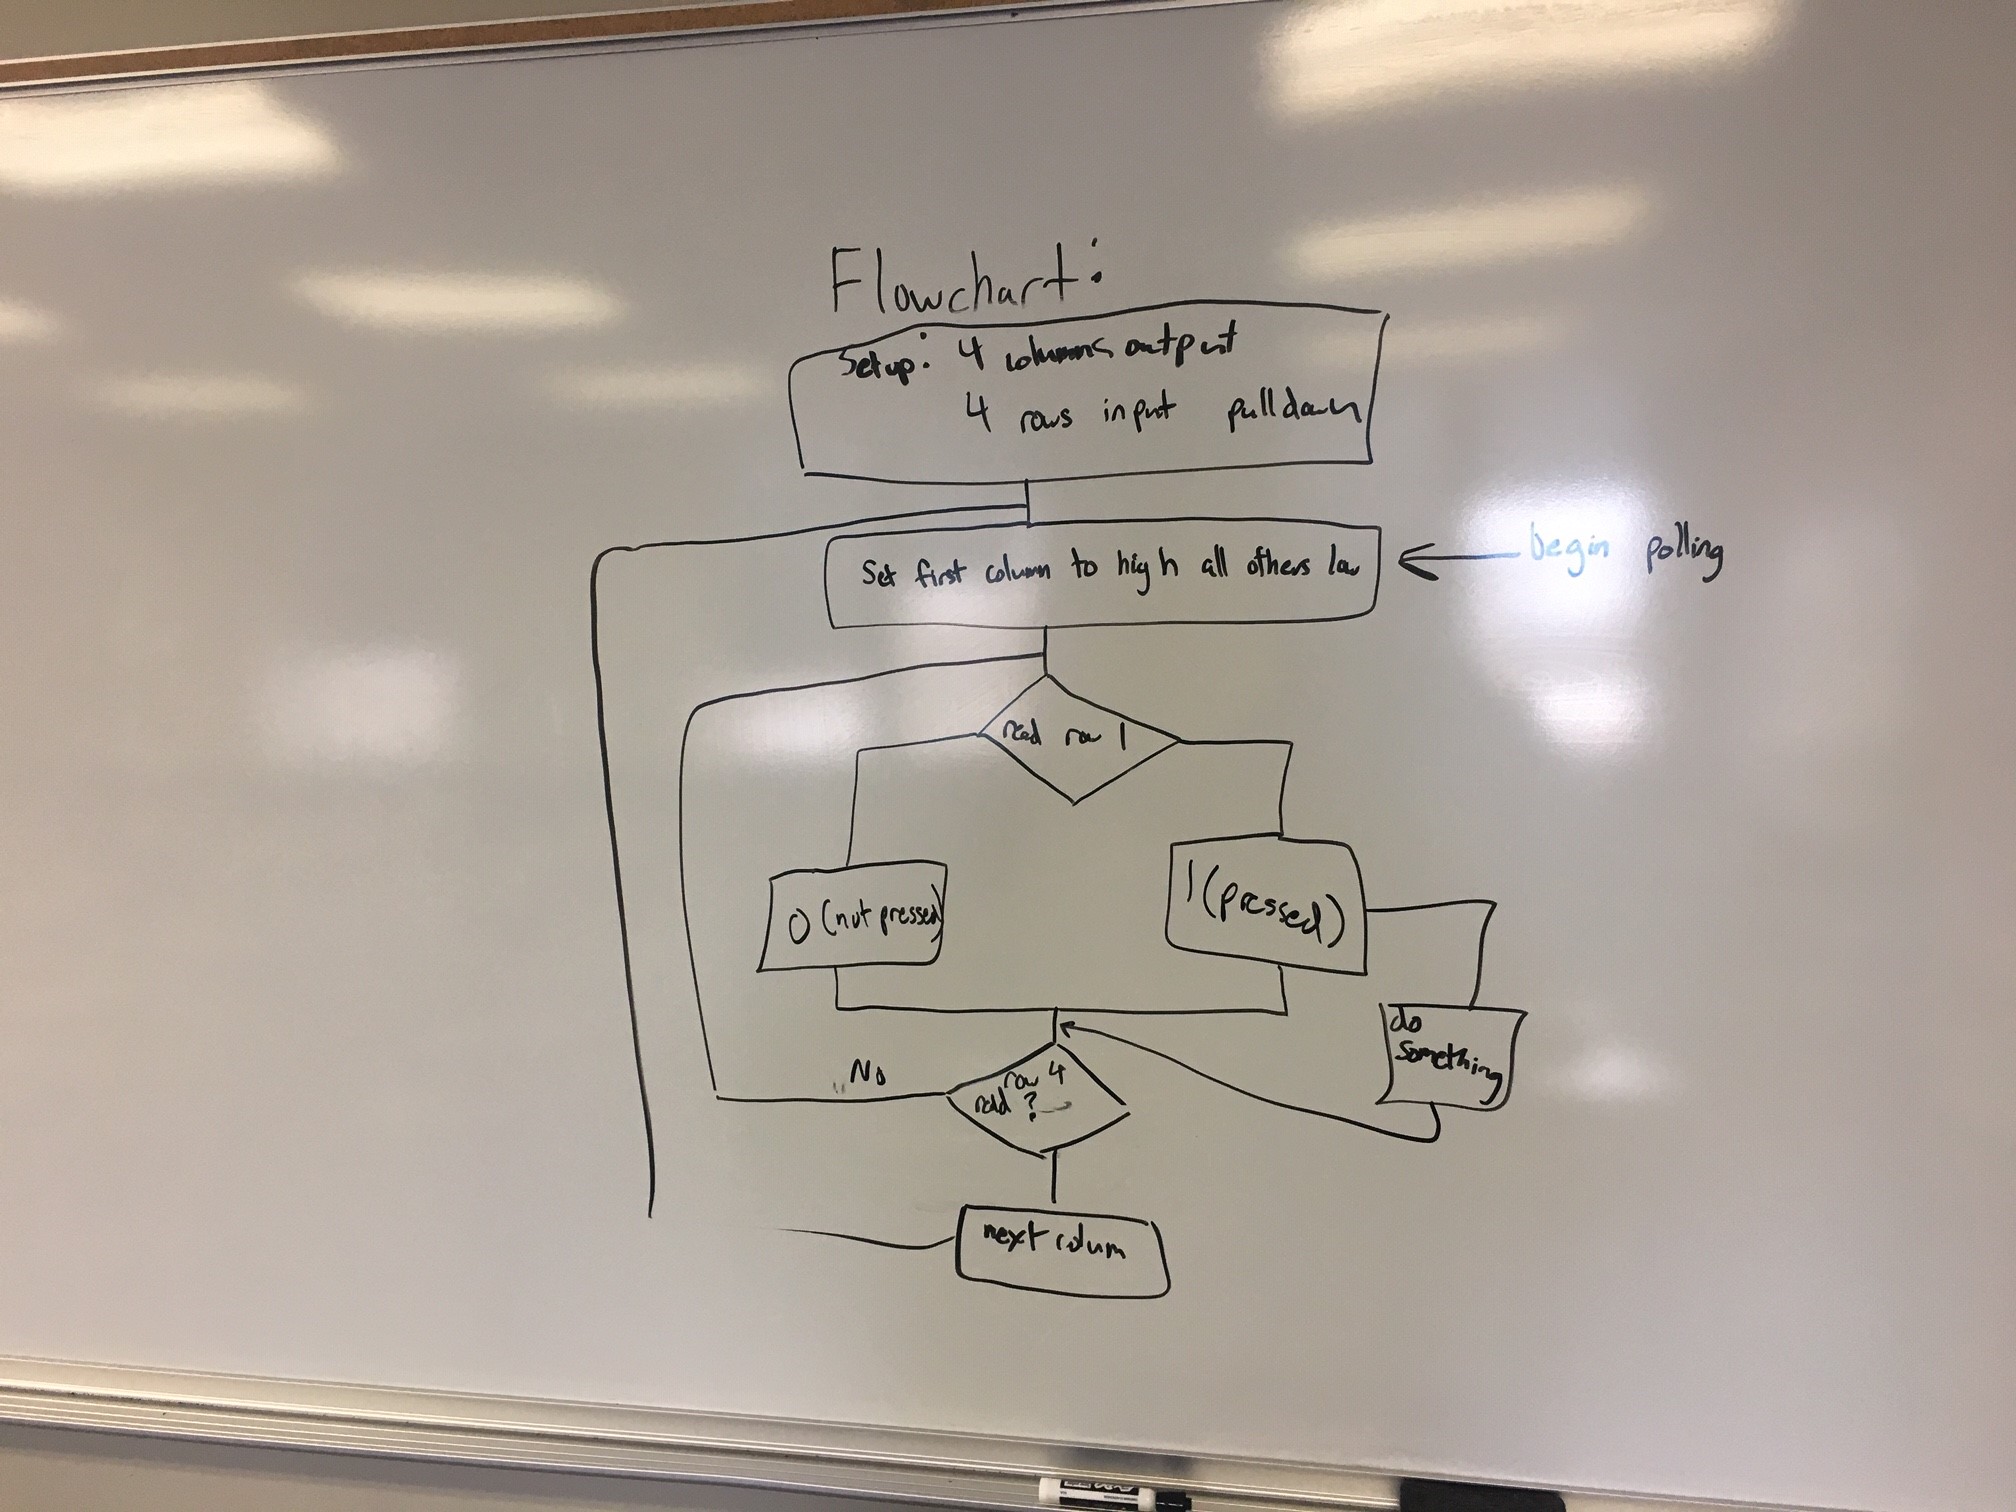 Flowchart:
Setup: 4 columns output
4 rows input pulldown
Set first column to high all others low
begin polling
read row 1
0 (not pressed)
1 (pressed)
do
something
No
row 4
read ?
next colum